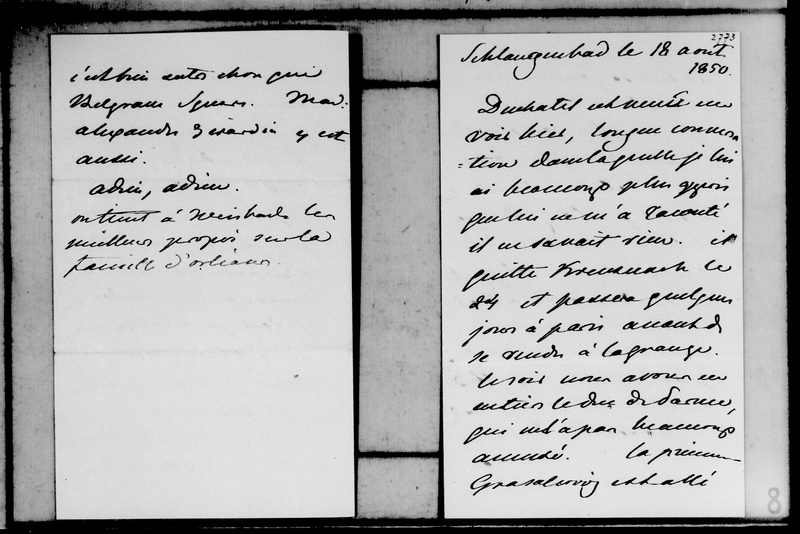 c'est bien autre chose que
Belgrave Square. Mad.
alexandre Girardin y est
aussi.
adieu, adieu.
on tient à Wiesbade les
meilleurs propos sur la
famille d'orléans.
2773
Schlangenbad le 18 août
1850.
Duchatel est venu me
voir hier, longue conversa
-tion dans laquelle je lui
ai beaucoup plus appris
que lui ne m'a raconté
il ne savait rien. il
quitte Kreusnach le
24 et passera quelques
jours à paris avant de
se rendre à lagrange.
le soir nous avons eu
le duc de Parme,
qui m'a pas beaucoup
amusé. la princesse
Grasalcoviz est allé
8